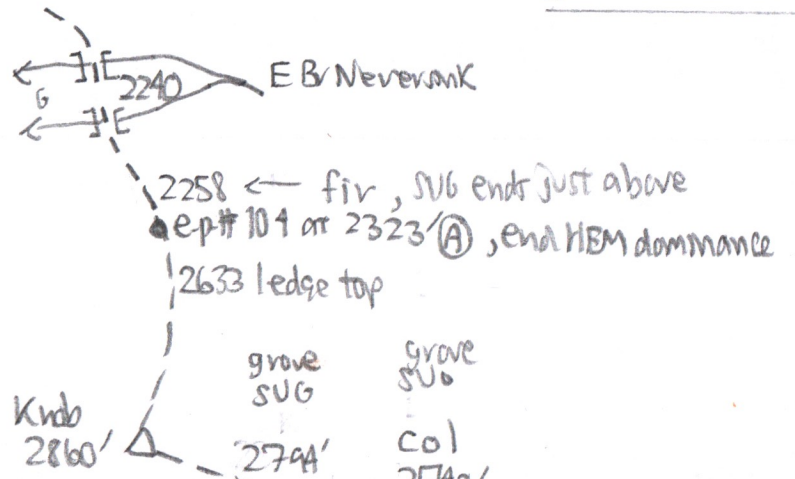 2240 E Br Neversink
G
2258 ← fir, SUG ends just above
ep# 104 at 2323' Ⓐ, end HEM dominance
2633 ledge top
grove grove
SUG SUG
Knob col
2860' 2794'